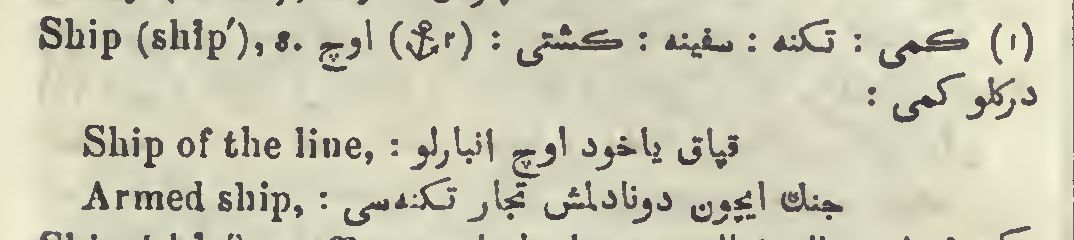 Ship (ship′), s. (١) كمی : تكنه : سفینه : كشتی : (٢⚓) اوچ
دركلو كمی :
Ship of the line, : قپاق یاخود اوچ انبارلو
Armed ship, : جنك ایچون دونادلمش تجار تكنه‌سی